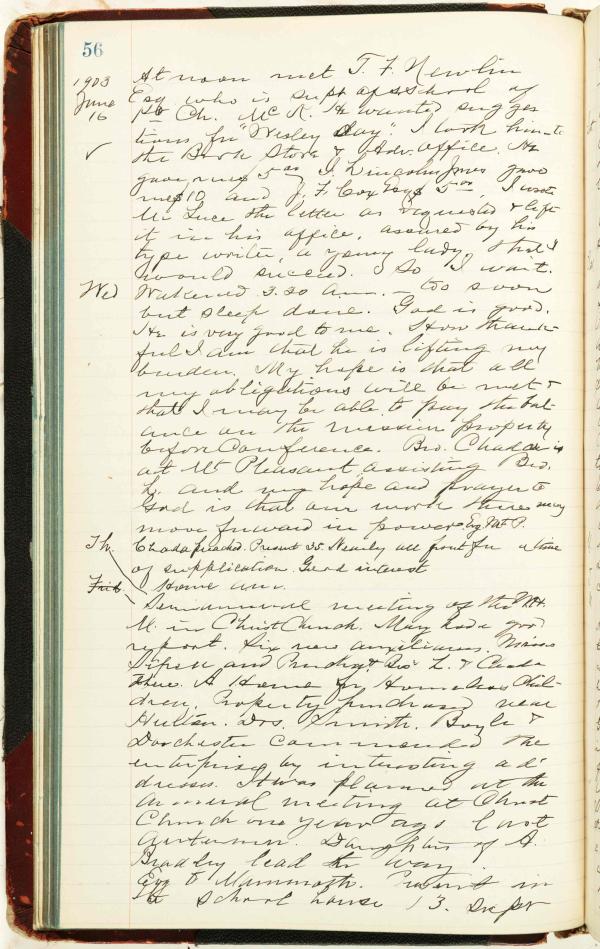 56
1903 At noon met T. F. Newlin
June Esq who is supt of S school of
16 1st Ch. McK. He wanted sugges
tions for "Wesley Day". I took him to
the Book Store & Adv. office. He
gave me $5 00 J. Lincoln Jones gave
me $10 and J. F. Cox Esq $5 00. I wrote
Mr Luce the letter as requested & left
it in his office, assured by his
type writer, a young lady, that I
would succeed. So I wait.
Wed Wakened 3.30 a.m. — too soon
but sleep done. God is good.
He is very good to me. How thank-
ful I am that he is lifting my
burden. My hope is that all
my obligations will be met &
that I may be able to pay the bal-
ance on the mission property
before Conference. Bro. Chada is
at Mt Pleasant assisting Bro.
L. and my hope and prayer to
God is that our work there may
move forward in power. Eg. Mt. P.
Th. Chada preached. Present 35. Nearly all front for a time
of supplication. Good interest
Frid Home a.m.
Semiannual meeting of the W.H.
M. in Christ Church. Mary had a good
report. Six new auxiliaries. Misses
and & Bro L. & Chada
there. A Home for Homeless Chil-
dren. Property purchased near
Hulton. Drs. Smith, Boyle &
Dorchester commended the
enterprise by interesting ad-
dresses. It was planned at the
annual meeting at Christ
Church one year ago last
Autumn. Daughters of A.
Bradley lead the way.
Evg to Mammoth. Present in
the school house 13. Supt